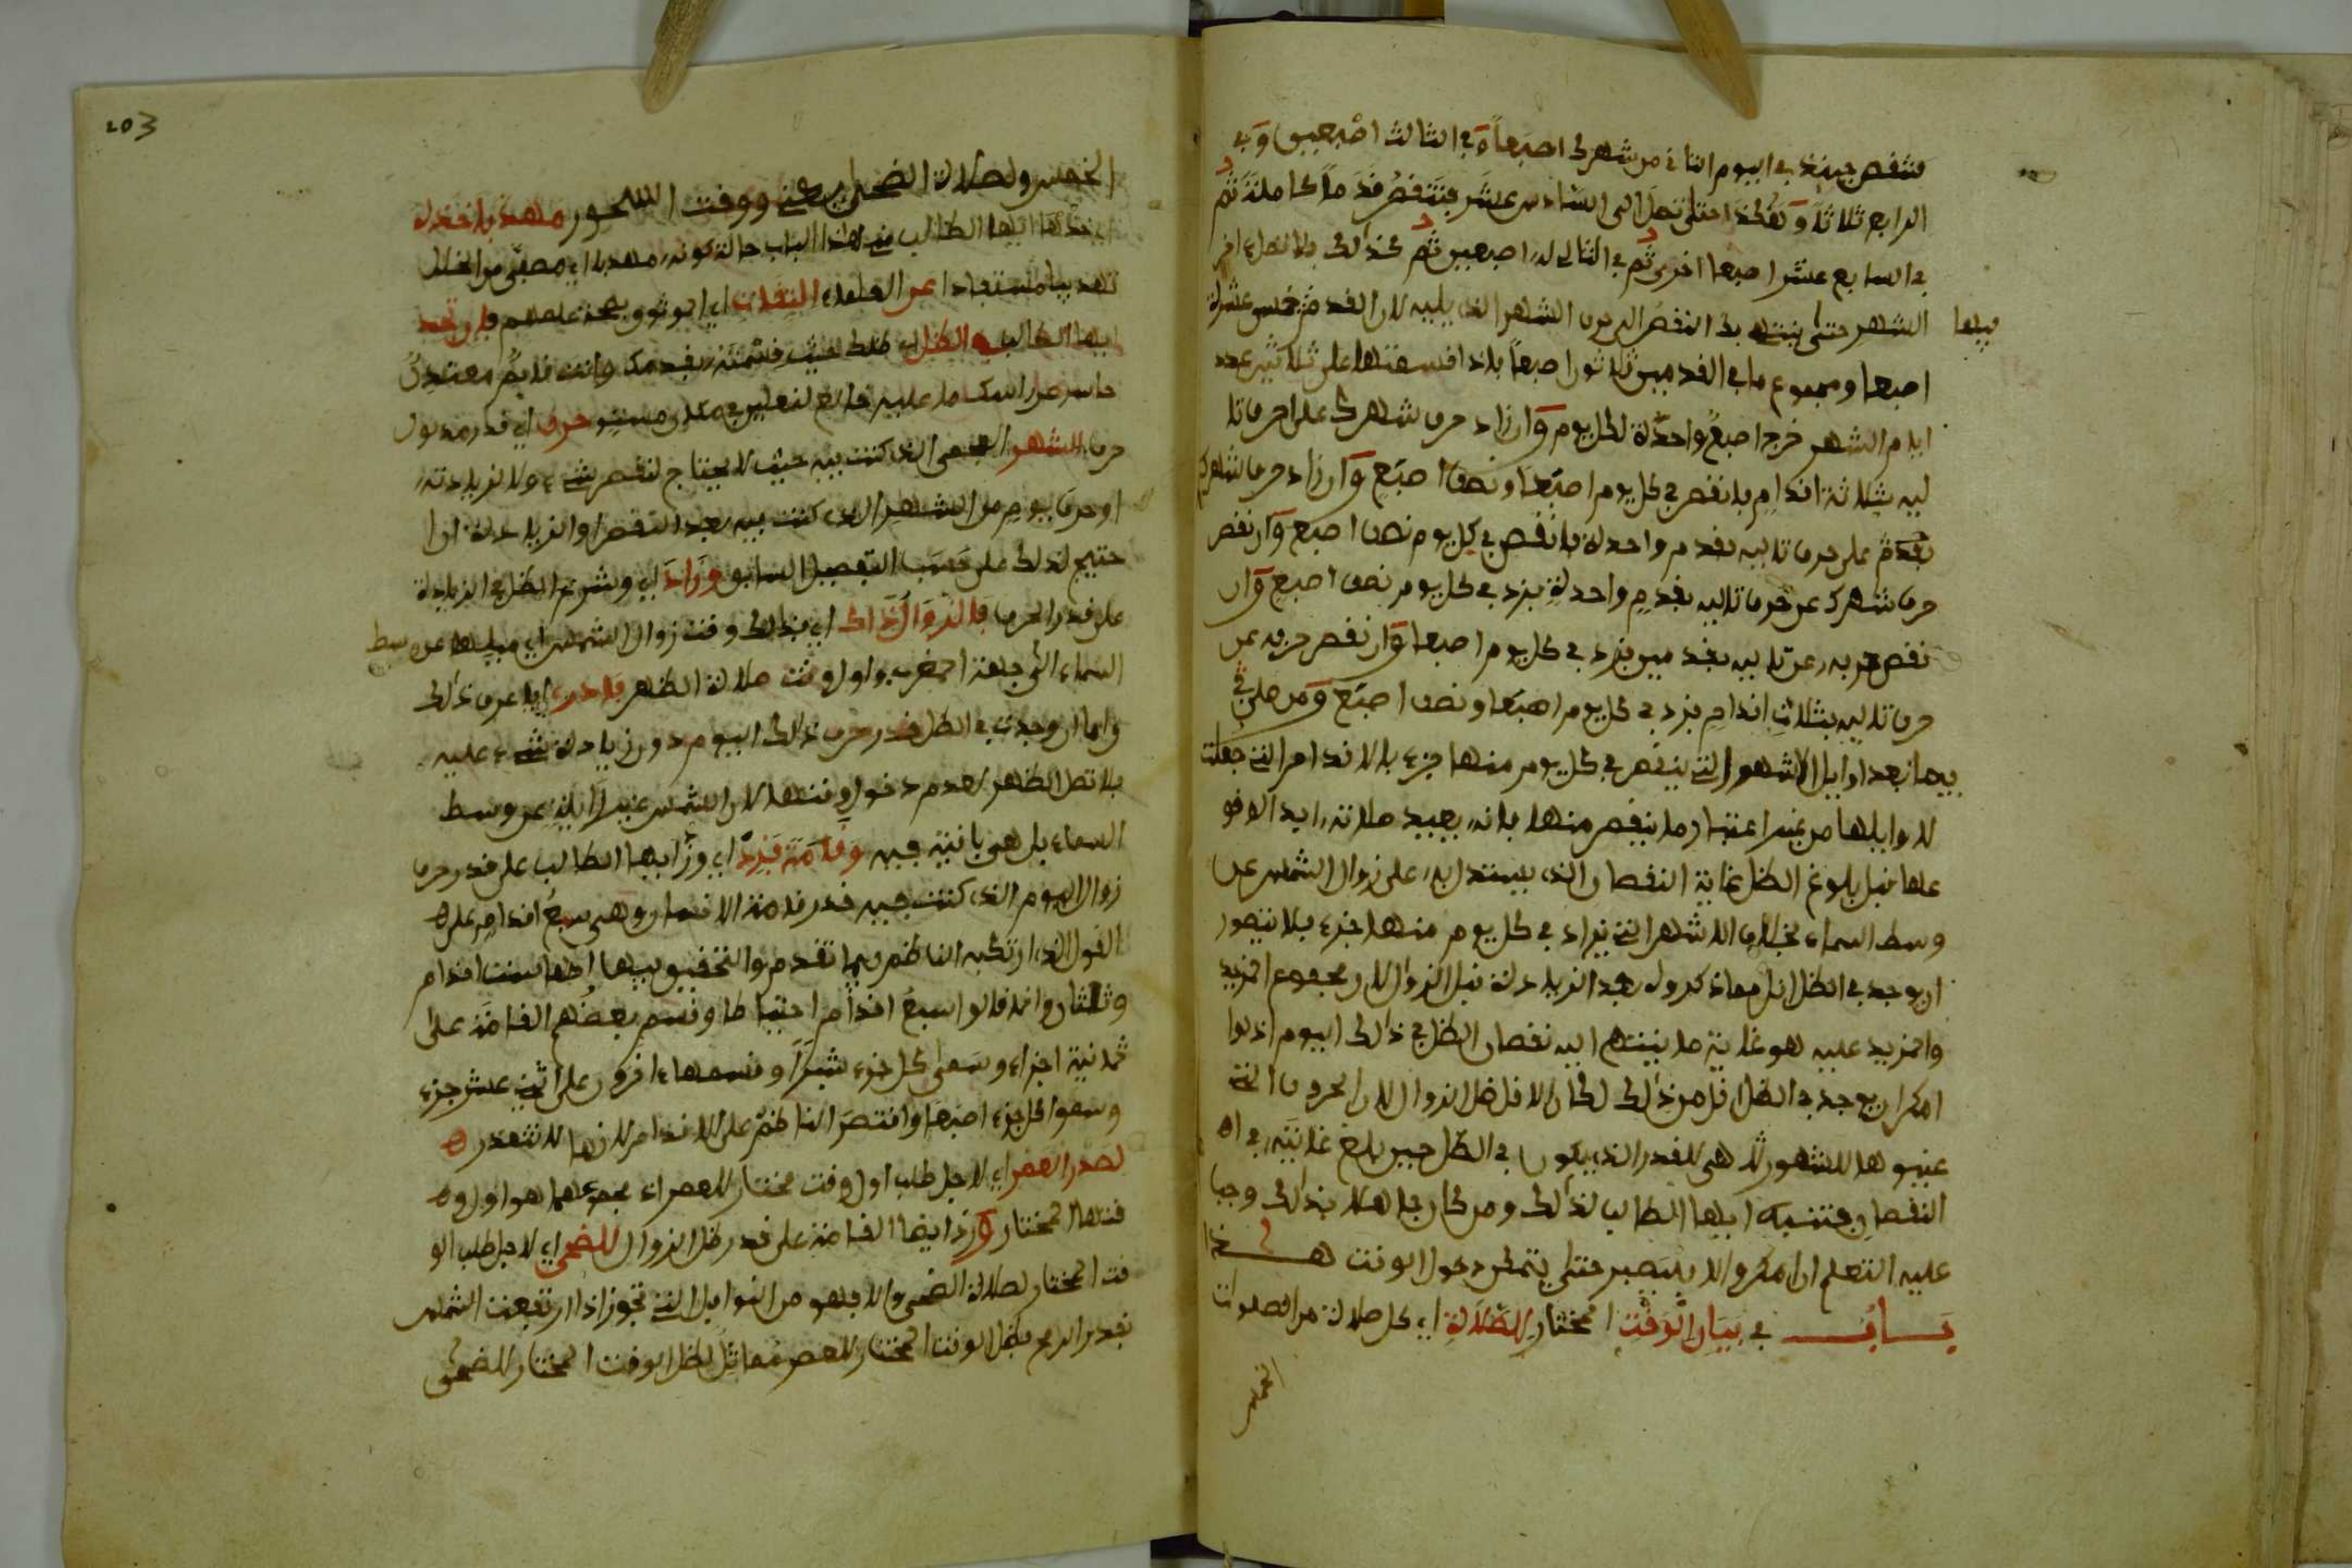 فتنقص حينئذ في اليوم الثاني من شهرك اصبعاً وفي الثالث اصبعين وفي
الرابع ثلاثة وهكذا حتى تصل الى السادس عشر فتنقص قدماً كاملة ثم
في السابع عشر اصبعا اخرى ثم في التالي له اصبعين ثم كذلك
الشهر حتى ينتهي بك النقص الى حرف الشهر الذي يليه لان القدم خمس عشرة
فيها
اصبعا ومجموع ما في القدمين ثلاثون اصبعاً فاذا قسمتها على ثلاثين عدد
ايام الشهر خرج اصبعٌ واحدة لكل يوم وان زاد حرف شهرك على حرف تا
ليه بثلاثة اقدام فانقص في كل يوم اصبعا ونصف اصبع وان زاد حرف شهرك
على حرف تاليه بقدم واحدة فانقص في كل يوم نصف اصبع وان نقص
حرف شهرك عن حرف تاليه بقدم واحدة فزد في كل يوم نصف اصبع وان
نقص حرفه عن تاليه بقدمين فزد في كل يوم اصبعا وان نقص حرفه عن
حرف تاليه بثلاث اقدام فزد في كل يوم اصبعا ونصف اصبع ومن صلى في
فيما بعد اوايل الاشهر التي ينقص في كل يوم منها جزء بالاقدام التي جعلت
لاوايلها من غير اعتبار ما ينقص منها فانه يعيد صلاته ابدا لوقو
عها قبل بلوغ الظل غاية النقصان الذي يستدل به على زوال الشمس عن
وسط السماء بخلاف الاشهر التي يزاد في كل يوم منها جزء فلا يتصور
ان يوجد في الظل اقل مما ذكروه بعد الزيادة قبل الزوال لان مجموع المزيد
والمزيد عليه هو غاية ما ينتهي اليه نقصان الظل في ذلك اليوم اذ لو
امكن ان يوجد في الظل اقل من ذلك لكان الاقل ظل الزوال لان الحروف التي
عينوها للشهور انما هي للقدر الذي يكون في الظل حين بلغ غايته في
النقصان فتنبه ايها الطالب لذلك ومن كان جاهلا بذلك وجب
عليه التعلم ان امكن والا فليصبر حتى يتحقق دخول الوقت هــذا
بـــاب في بيان الوقت المختار للصلاة اي كل صلاة من الصلوات
الخمس
203
الخمس ولصلاة الضحى ووقت السحور مهذبا فخذه
اي خذ ايها الطالب هذا الباب حالة كونه مهذبا اي مصفى من الخلل
تهذيبا مستفادا عن العلماء الثقات اي الموثوق بصحة علمهم فان تجد
ايها الطالب الظل اي ظلك حيث قسته بقدمك وانت قايم معتدل
حاسر عن راسك ما عليه خالع لنعليك في مكان مستو حرف اي قدر مدلول
حرف الشهر العجمي الذي كنت فيه حيث لا يحتاج لنقص شيء ولا لزيادته
او حرف يوم من الشهر الذي كنت فيه بعد النقص او الزيادة ان ا
حتيج لذلك على حسب التفصيل السابق وزاد اي وشرع الظل في الزيادة
على قدر الحرف فالزوال ذاك اي فذلك وقت زوال الشمس اي ميلها عن وسط
السماء الى جهة المغرب واول وقت صلاة الظهر فادر اي فاعرف ذلك
واما ان وجدت في الظل قدر حرف ذلك اليوم دون زيادة شيء عليه
فلا تصل الظهر لعدم دخول وقتها لان الشمس غير زائلة عن وسط
السماء بل هي باقية فيه وقامة فزد اي وزد ايها الطالب على قدر حرف
زوال اليوم الذي كنت فيه قدر قامة الانسان وهي سبع اقدام على
القول الذي ارتكبه الناظم فيما تقدم والتحقيق فيها انها ست اقدام
وثلثان وانما قالوا سبع اقدام احتياطا وقسم بعضهم القامة على
ثمانية اجزاء وسمى كل جزء شبراً وقسمها اخرون على اثني عشر جزء
وسموا كل جزء اصبعا واقتصر الناظم على الاقدام لانها لا تتعذر
لصدر العصر اي لاجل طلب اول وقت مختار للعصر اذ مجموعهما هو اول و
قتها المختار وزد ايضا القامة على قدر ظل الزوال للضحى اي لاجل طلب الو
قت المختار لصلاة الضحى والا فهو من النوافل التي تجوز اذا ارتفعت الشمس
بقدر الرمح فظل الوقت المختار للعصر مماثل لظل الوقت المختار للضحى